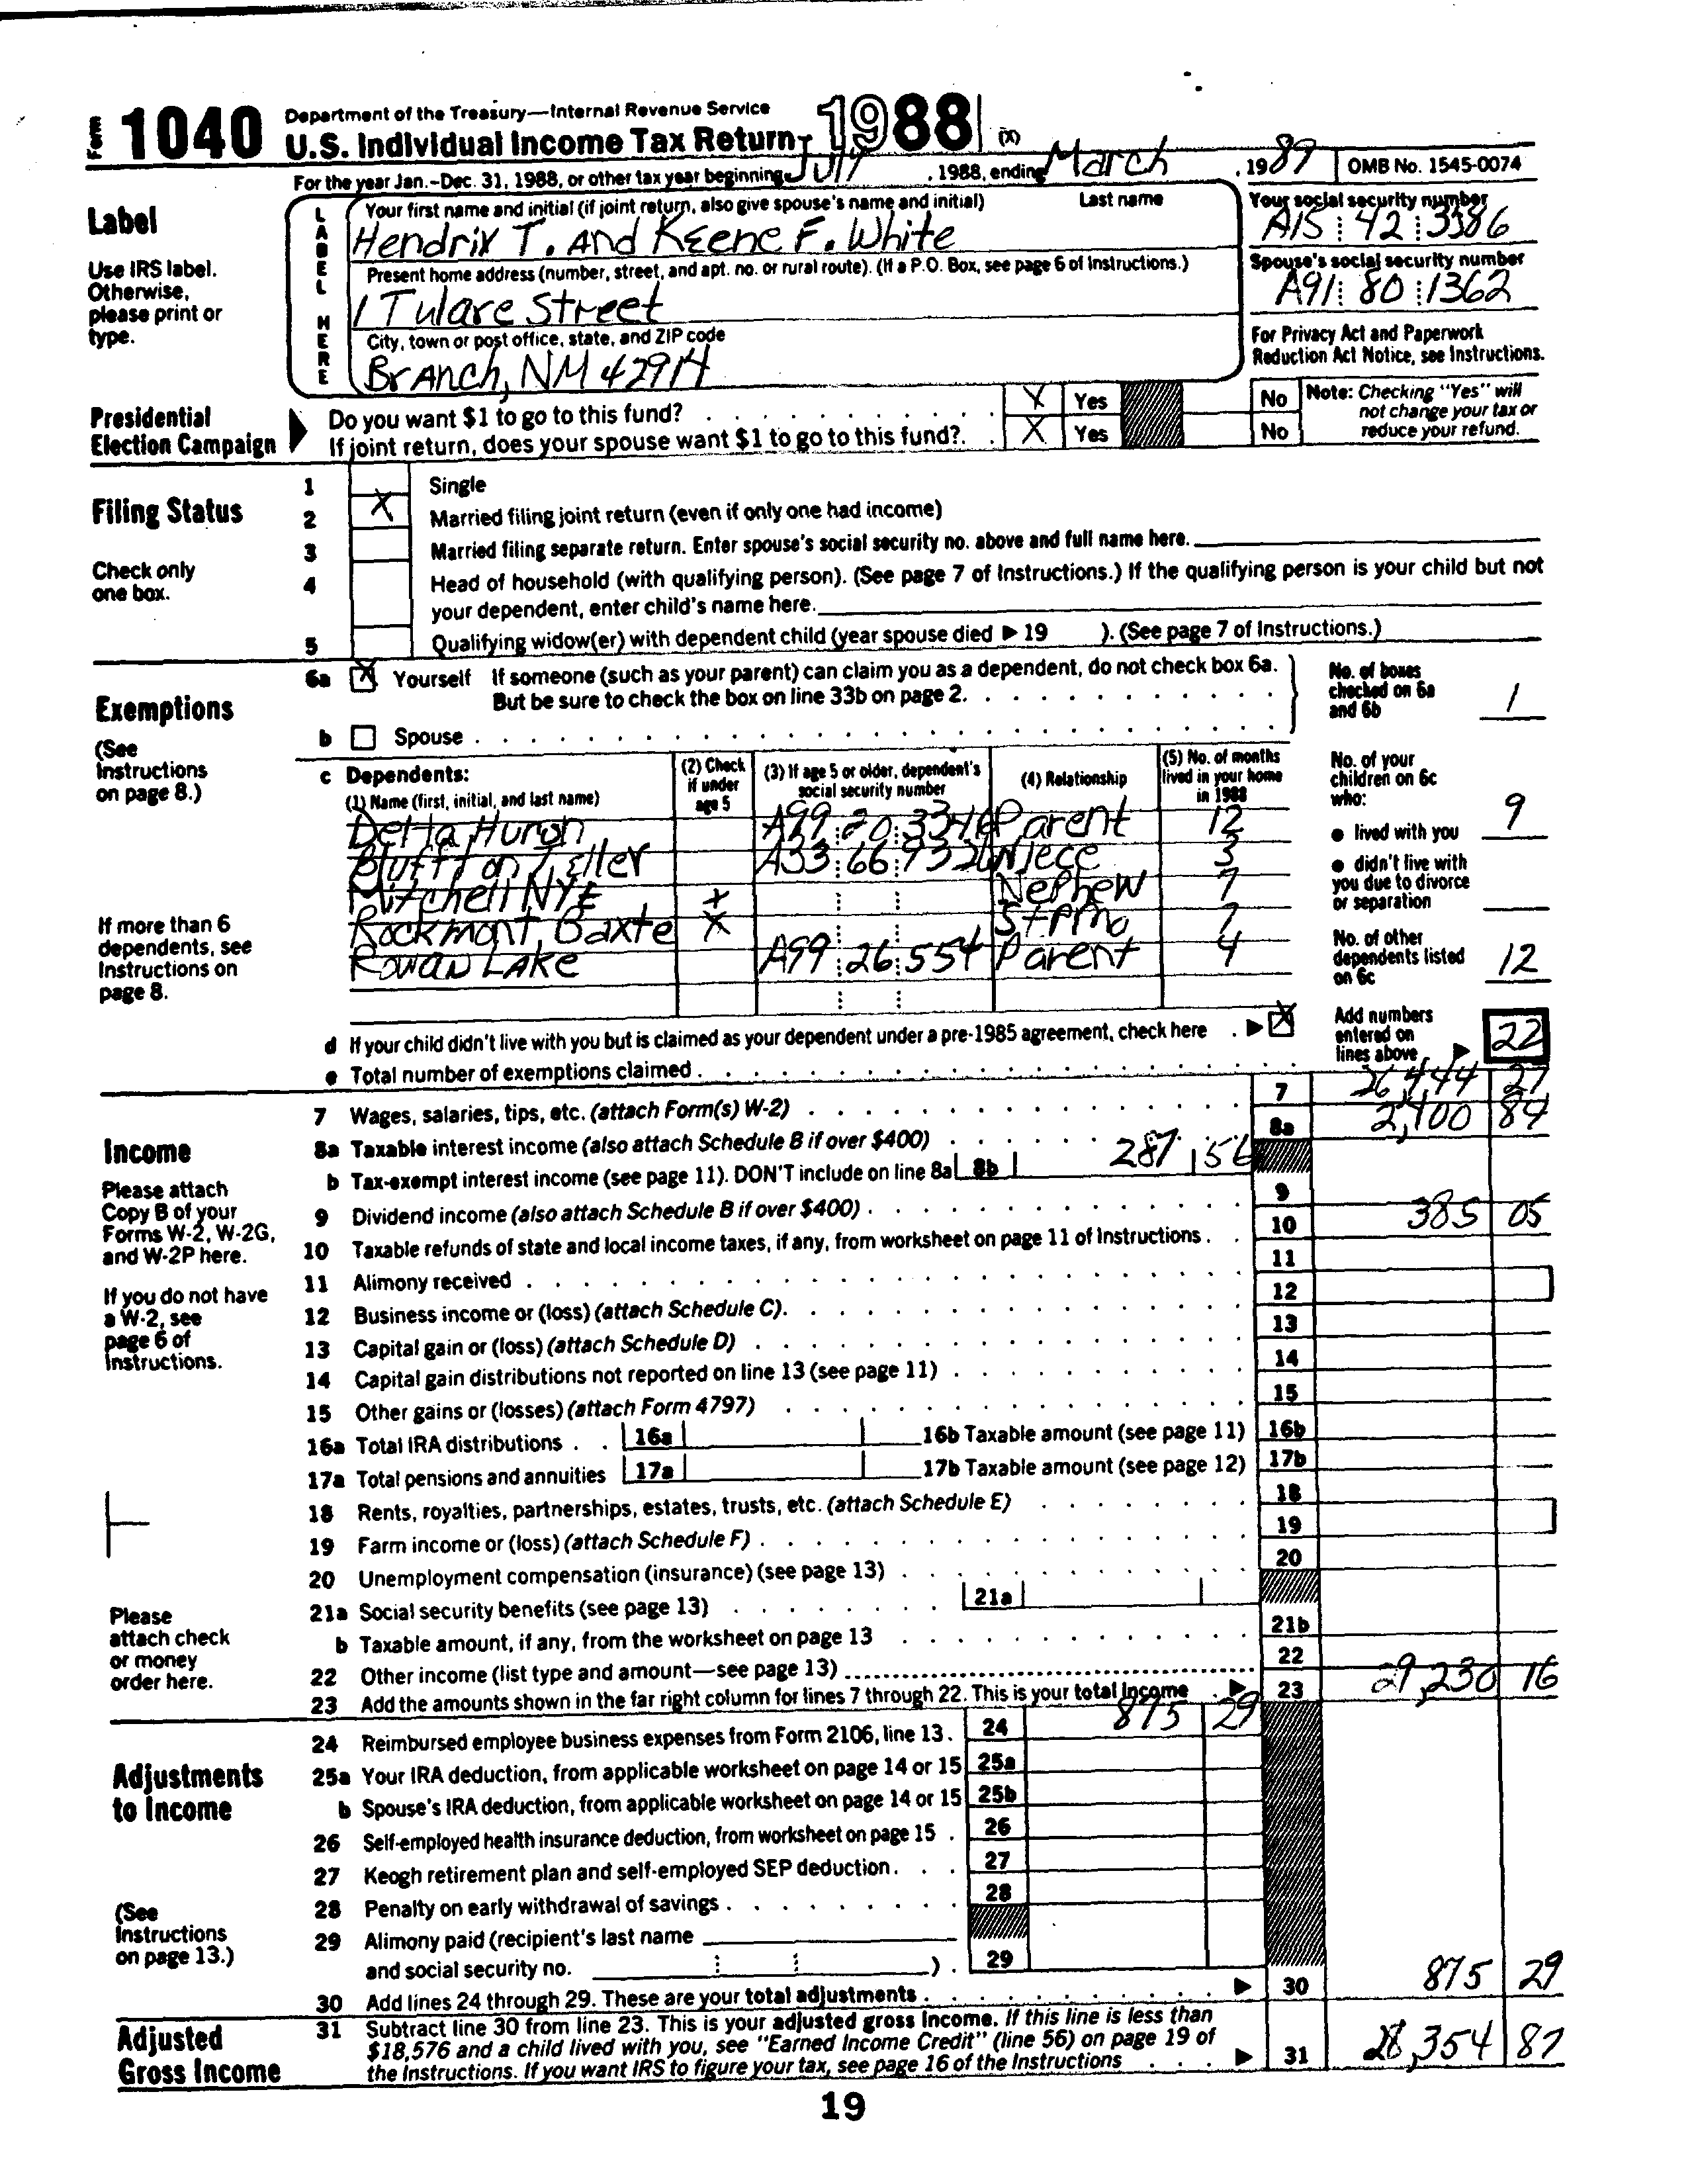 Form 1040 Department of the Treasury—Internal Revenue Service
U.S. Individual Income Tax Return 1988 (X)
For the year Jan.-Dec. 31, 1988, or other tax year beginning July , 1988, ending March , 19 89 OMB No. 1545-0074
Label
Use IRS label. Otherwise, please print or type.
LABEL HERE
Your first name and initial (if joint return, also give spouse's name and initial) Last name
Hendrix T. And Keene F. White
Your social security number
A15 42 3386
Present home address (number, street, and apt. no. or rural route). (If a P.O. Box, see page 6 of Instructions.)
1 Tulare Street
Spouse's social security number
A91 80 1362
City, town or post office, state, and ZIP code
Branch, NM
For Privacy Act and Paperwork Reduction Act Notice, see Instructions.
Presidential Election Campaign
Do you want $1 to go to this fund? X Yes No
If joint return, does your spouse want $1 to go to this fund? X Yes No
Note: Checking "Yes" will not change your tax or reduce your refund.
Filing Status
Check only one box.
1 Single
2 X Married filing joint return (even if only one had income)
3 Married filing separate return. Enter spouse's social security no. above and full name here.
4 Head of household (with qualifying person). (See page 7 of Instructions.) If the qualifying person is your child but not
your dependent, enter child's name here.
5 Qualifying widow(er) with dependent child (year spouse died ▶ 19 ). (See page 7 of Instructions.)
Exemptions
(See Instructions on page 8.)
6a X Yourself If someone (such as your parent) can claim you as a dependent, do not check box 6a.
But be sure to check the box on line 33b on page 2.
b Spouse
No. of boxes checked on 6a and 6b 1
c Dependents:
(1) Name (first, initial, and last name) (2) Check if under age 5 (3) If age 5 or older, dependent's social security number (4) Relationship (5) No. of months lived in your home in 1988
Delta Huron A99 20 3346 Parent 12
Bluffton Zeller A33 66 9326 Niece 3
Mitchell NYE X Nephew 7
Rockmont Baxte X 7
Rowan Lake A99 26 554 Parent 4
If more than 6 dependents, see Instructions on page 8.
No. of your children on 6c who:
● lived with you 9
● didn't live with you due to divorce or separation
No. of other dependents listed on 6c 12
d If your child didn't live with you but is claimed as your dependent under a pre-1985 agreement, check here ▶ X
e Total number of exemptions claimed
Add numbers entered on lines above ▶ 22
Income
Please attach Copy B of your Forms W-2, W-2G, and W-2P here.
If you do not have a W-2, see page 6 of Instructions.
Please attach check or money order here.
7 Wages, salaries, tips, etc. (attach Form(s) W-2) 7 26,444 27
8a Taxable interest income (also attach Schedule B if over $400) 8a 2,400 84
b Tax-exempt interest income (see page 11). DON'T include on line 8a 8b 287 56
9 Dividend income (also attach Schedule B if over $400) 9
10 Taxable refunds of state and local income taxes, if any, from worksheet on page 11 of Instructions 10 385 05
11 Alimony received 11
12 Business income or (loss) (attach Schedule C) 12
13 Capital gain or (loss) (attach Schedule D) 13
14 Capital gain distributions not reported on line 13 (see page 11) 14
15 Other gains or (losses) (attach Form 4797) 15
16a Total IRA distributions 16a 16b Taxable amount (see page 11) 16b
17a Total pensions and annuities 17a 17b Taxable amount (see page 12) 17b
18 Rents, royalties, partnerships, estates, trusts, etc. (attach Schedule E) 18
19 Farm income or (loss) (attach Schedule F) 19
20 Unemployment compensation (insurance) (see page 13) 20
21a Social security benefits (see page 13) 21a
b Taxable amount, if any, from the worksheet on page 13 21b
22 Other income (list type and amount—see page 13) 22
23 Add the amounts shown in the far right column for lines 7 through 22. This is your total income ▶ 23 29,230 16
Adjustments to Income
(See Instructions on page 13.)
24 Reimbursed employee business expenses from Form 2106, line 13 24 875 29
25a Your IRA deduction, from applicable worksheet on page 14 or 15 25a
b Spouse's IRA deduction, from applicable worksheet on page 14 or 15 25b
26 Self-employed health insurance deduction, from worksheet on page 15 26
27 Keogh retirement plan and self-employed SEP deduction 27
28 Penalty on early withdrawal of savings 28
29 Alimony paid (recipient's last name
and social security no. ) 29
30 Add lines 24 through 29. These are your total adjustments ▶ 30 875 29
Adjusted Gross Income
31 Subtract line 30 from line 23. This is your adjusted gross income. If this line is less than
$18,576 and a child lived with you, see "Earned Income Credit" (line 56) on page 19 of
the Instructions. If you want IRS to figure your tax, see page 16 of the Instructions ▶ 31 28,354 87
19